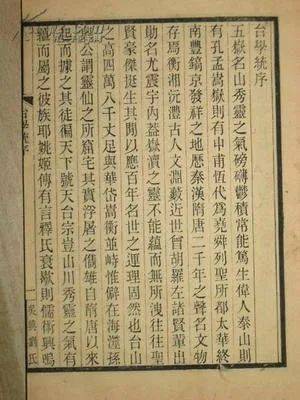 台學統序
五嶽名山秀靈之氣磅礴鬱積常能篤生偉人泰山則
有孔孟嵩嶽則有申甫恆代爲堯舜列聖所都太華終
南豐鎬京發祥之地歷秦漢隋唐二千年之聲名文物
存焉衡湘沅澧古人文淵藪近世曾胡羅左諸賢輩出
勛名尤震宇內益嶽瀆之靈不能蘊而無所洩往往聖
賢豪傑挺生其閒以應百年名世之運理固然也台山
之高四萬八千丈足與華岱嵩衡並峙惟僻在海澨孫
公謂靈仙之所窟宅其實浮屠之儁雄自隋唐以來
起而據之其徒徧天下號天台宗豈山川秀靈之氣有
而屬之彼族耶姚姬傳有言釋氏衰歇則儒術興鳴
台學統序
一
劉氏